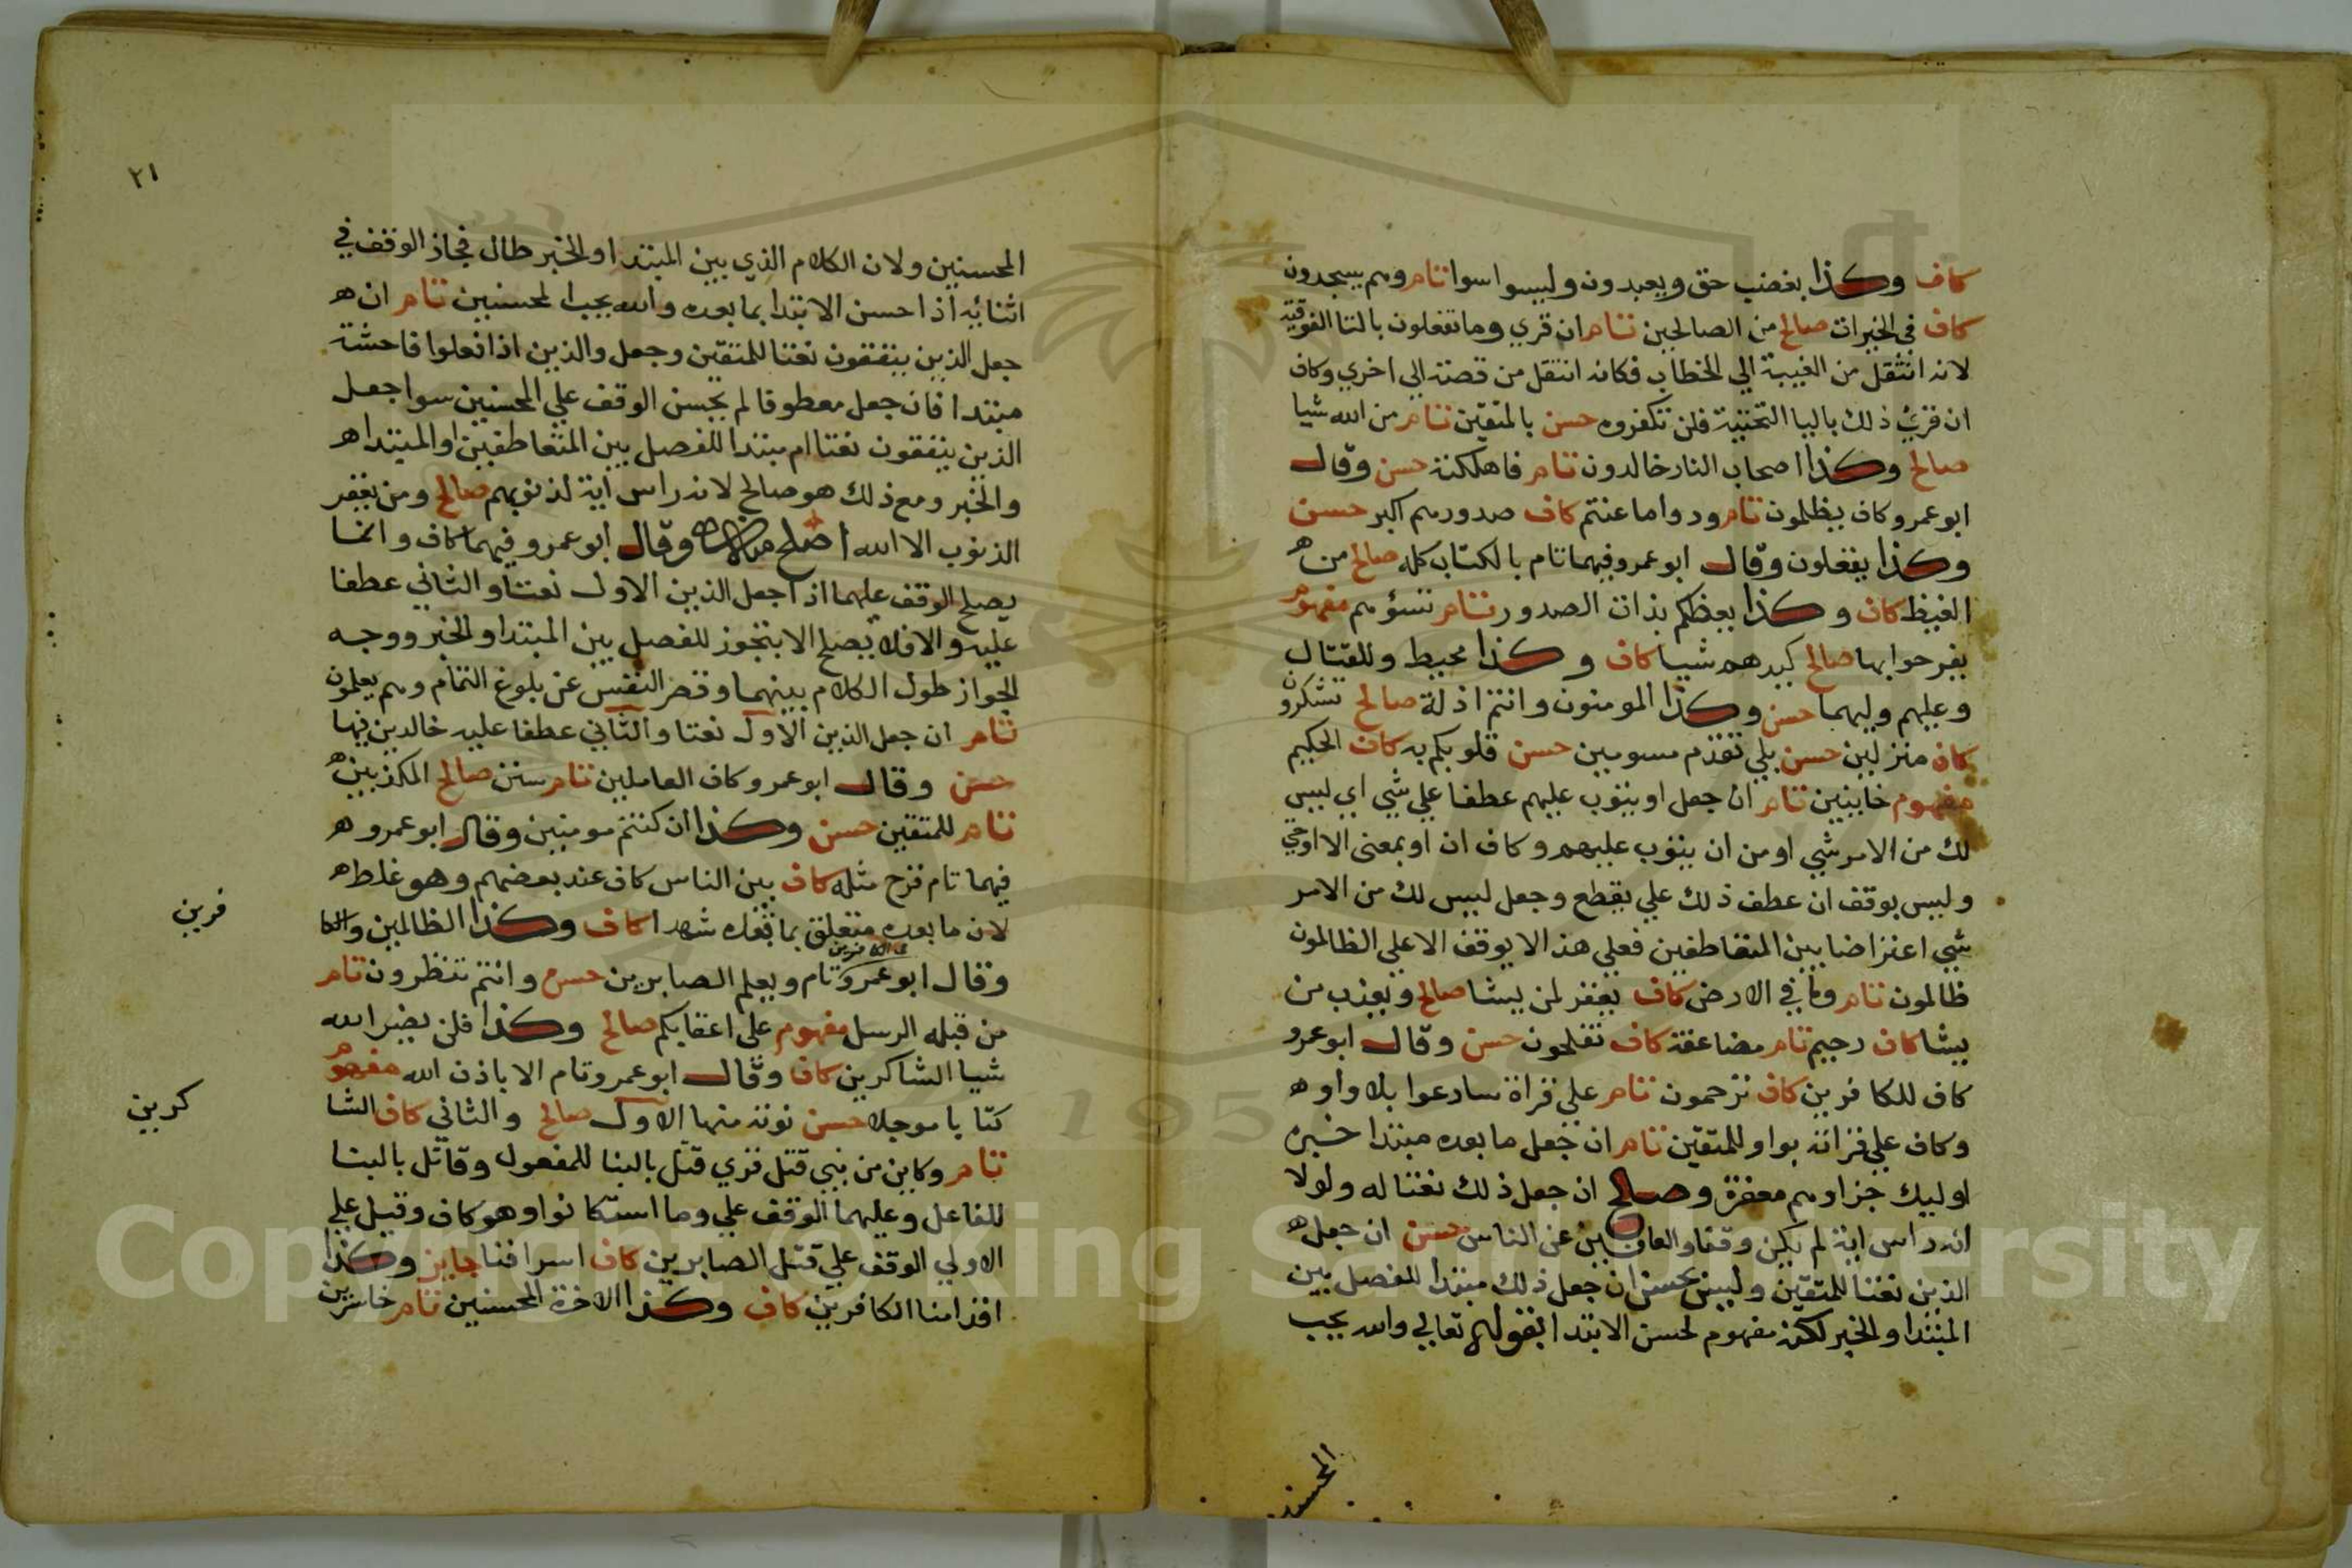 كاف وكذا بغضب حق ويعبدون وليسوا سوا تام وهم يسجدون
كاف في الخيرات صالح من الصالحين تام ان قري وما تفعلون بالتا الفوقية
لانه انتقل من الغيبة الي الخطاب فكانه انتقل من قصة الي اخري وكاف
ان قرئ ذلك باليا التحتية فلن تكفروه حسن بالمتقين تام من الله شيا
صالح وكذا اصحاب النار خالدون تام فاهلكته حسن وقال
ابو عمرو كاف يظلمون تام ودوا ما عنتم كاف صدورهم اكبر حسن
وكذا يفعلون وقال ابو عمرو فيهما تام بالكتاب كله صالح من
الغيظ كاف وكذا بغيظكم بذات الصدور تام تسؤهم مفهوم
يفرحوا بها صالح كيدهم شيا كاف وكذا محيط وللقتال
وعليهم وليهما حسن وكذا المومنون وانتم اذلة صالح تشكرون
كاف منزلين حسن بلي تقدم مسومين حسن قلوبكم به كاف الحكيم
مفهوم خايبين تام ان جعل او يتوب عليهم عطفا علي شي اي ليس
لك من الامر شي او من ان يتوب عليهم وكاف ان او بمعني الا او حتي
وليس بوقف ان عطف ذلك علي يقطع وجعل ليس لك من الامر
شي اعتراضا بين المتعاطفين فعلي هذا لا يوقف الا علي الظالمون
ظالمون تام وما في الارض كاف يغفر لمن يشا صالح ويعذب من
يشا كاف رحيم تام مضاعفة كاف تفلحون حسن وقال ابو عمرو
كاف للكافرين كاف ترحمون تام علي قراة سارعوا بلا واو
وكاف علي قراته بواو للمتقين تام ان جعل ما بعده مبتدا خبره
اوليك جزاوهم مغفرة وصالح ان جعل ذلك نعتا له ولولا
انه راس اية لم يكن وقفا والعافين عن الناس حسن ان جعل
الذين نعتا للمتقين وليس بحسن ان جعل ذلك مبتدا للفصل بين
المبتدا والخبر لكنه مفهوم لحسن الابتدا بقولهم تعالي والله يحب
المحسنين
٢١
المحسنين ولان الكلام الذي بين المبتدا والخبر طال فجاز الوقف في
اثنائه اذا حسن الابتدا بما بعده والله يحب المحسنين تام ان
جعل الذين ينفقون نعتا للمتقين وجعل والذين اذا فعلوا فاحشة
مبتدا فان جعل معطوفا لم يحسن الوقف علي المحسنين سوا جعل
الذين ينفقون نعتا ام مبتدا للفصل بين المتعاطفين او المبتدا
والخبر ومع ذلك هو صالح لانه راس اية لذنوبهم صالح ومن يغفر
الذنوب الا الله اصلح وقال ابو عمرو فيهما كاف وانما
يصلح الوقف عليهما اذا جعل الذين الاول نعتا والثاني عطفا
عليه والا فلا يصلح الا بتجوز للفصل بين المبتدا والخبر ووجه
الجواز طول الكلام بينهما وقصر النفس عن بلوغ التمام وهم يعلمون
تام ان جعل الذين الاول نعتا والثاني عطفا عليه خالدين فيها
حسن وقال ابو عمرو كاف العاملين تام سنن صالح المكذبين
تام للمتقين حسن وكذا ان كنتم مومنين وقال ابو عمرو
فيهما تام قرح مثله كاف بين الناس كاف عند بعضهم وهو غلط
لان ما بعده متعلق بما قبله شهدا كاف وكذا الظالمين والكا
فرين
وقال ابو عمرو تام ويعلم الصابرين حسن وانتم تنظرون تام
من قبله الرسل مفهوم علي اعقابكم صالح وكذا فلن يضر الله
شيا الشاكرين كاف وقال ابو عمرو تام الا باذن الله مفهوم
كتابا موجلا حسن نوته منها الاول صالح والثاني كاف الشا
كرين
تام وكاين من نبي قتل قري قتل بالبنا للمفعول وقاتل بالبنا
للفاعل وعليهما الوقف علي وما استكانوا وهو كاف وقيل علي
الاولي الوقف علي قتل الصابرين كاف اسرافنا جايز وكذا
اقدامنا الكافرين كاف وكذا الاخرة المحسنين تام خاسرين
Copyright © King Saud University
195